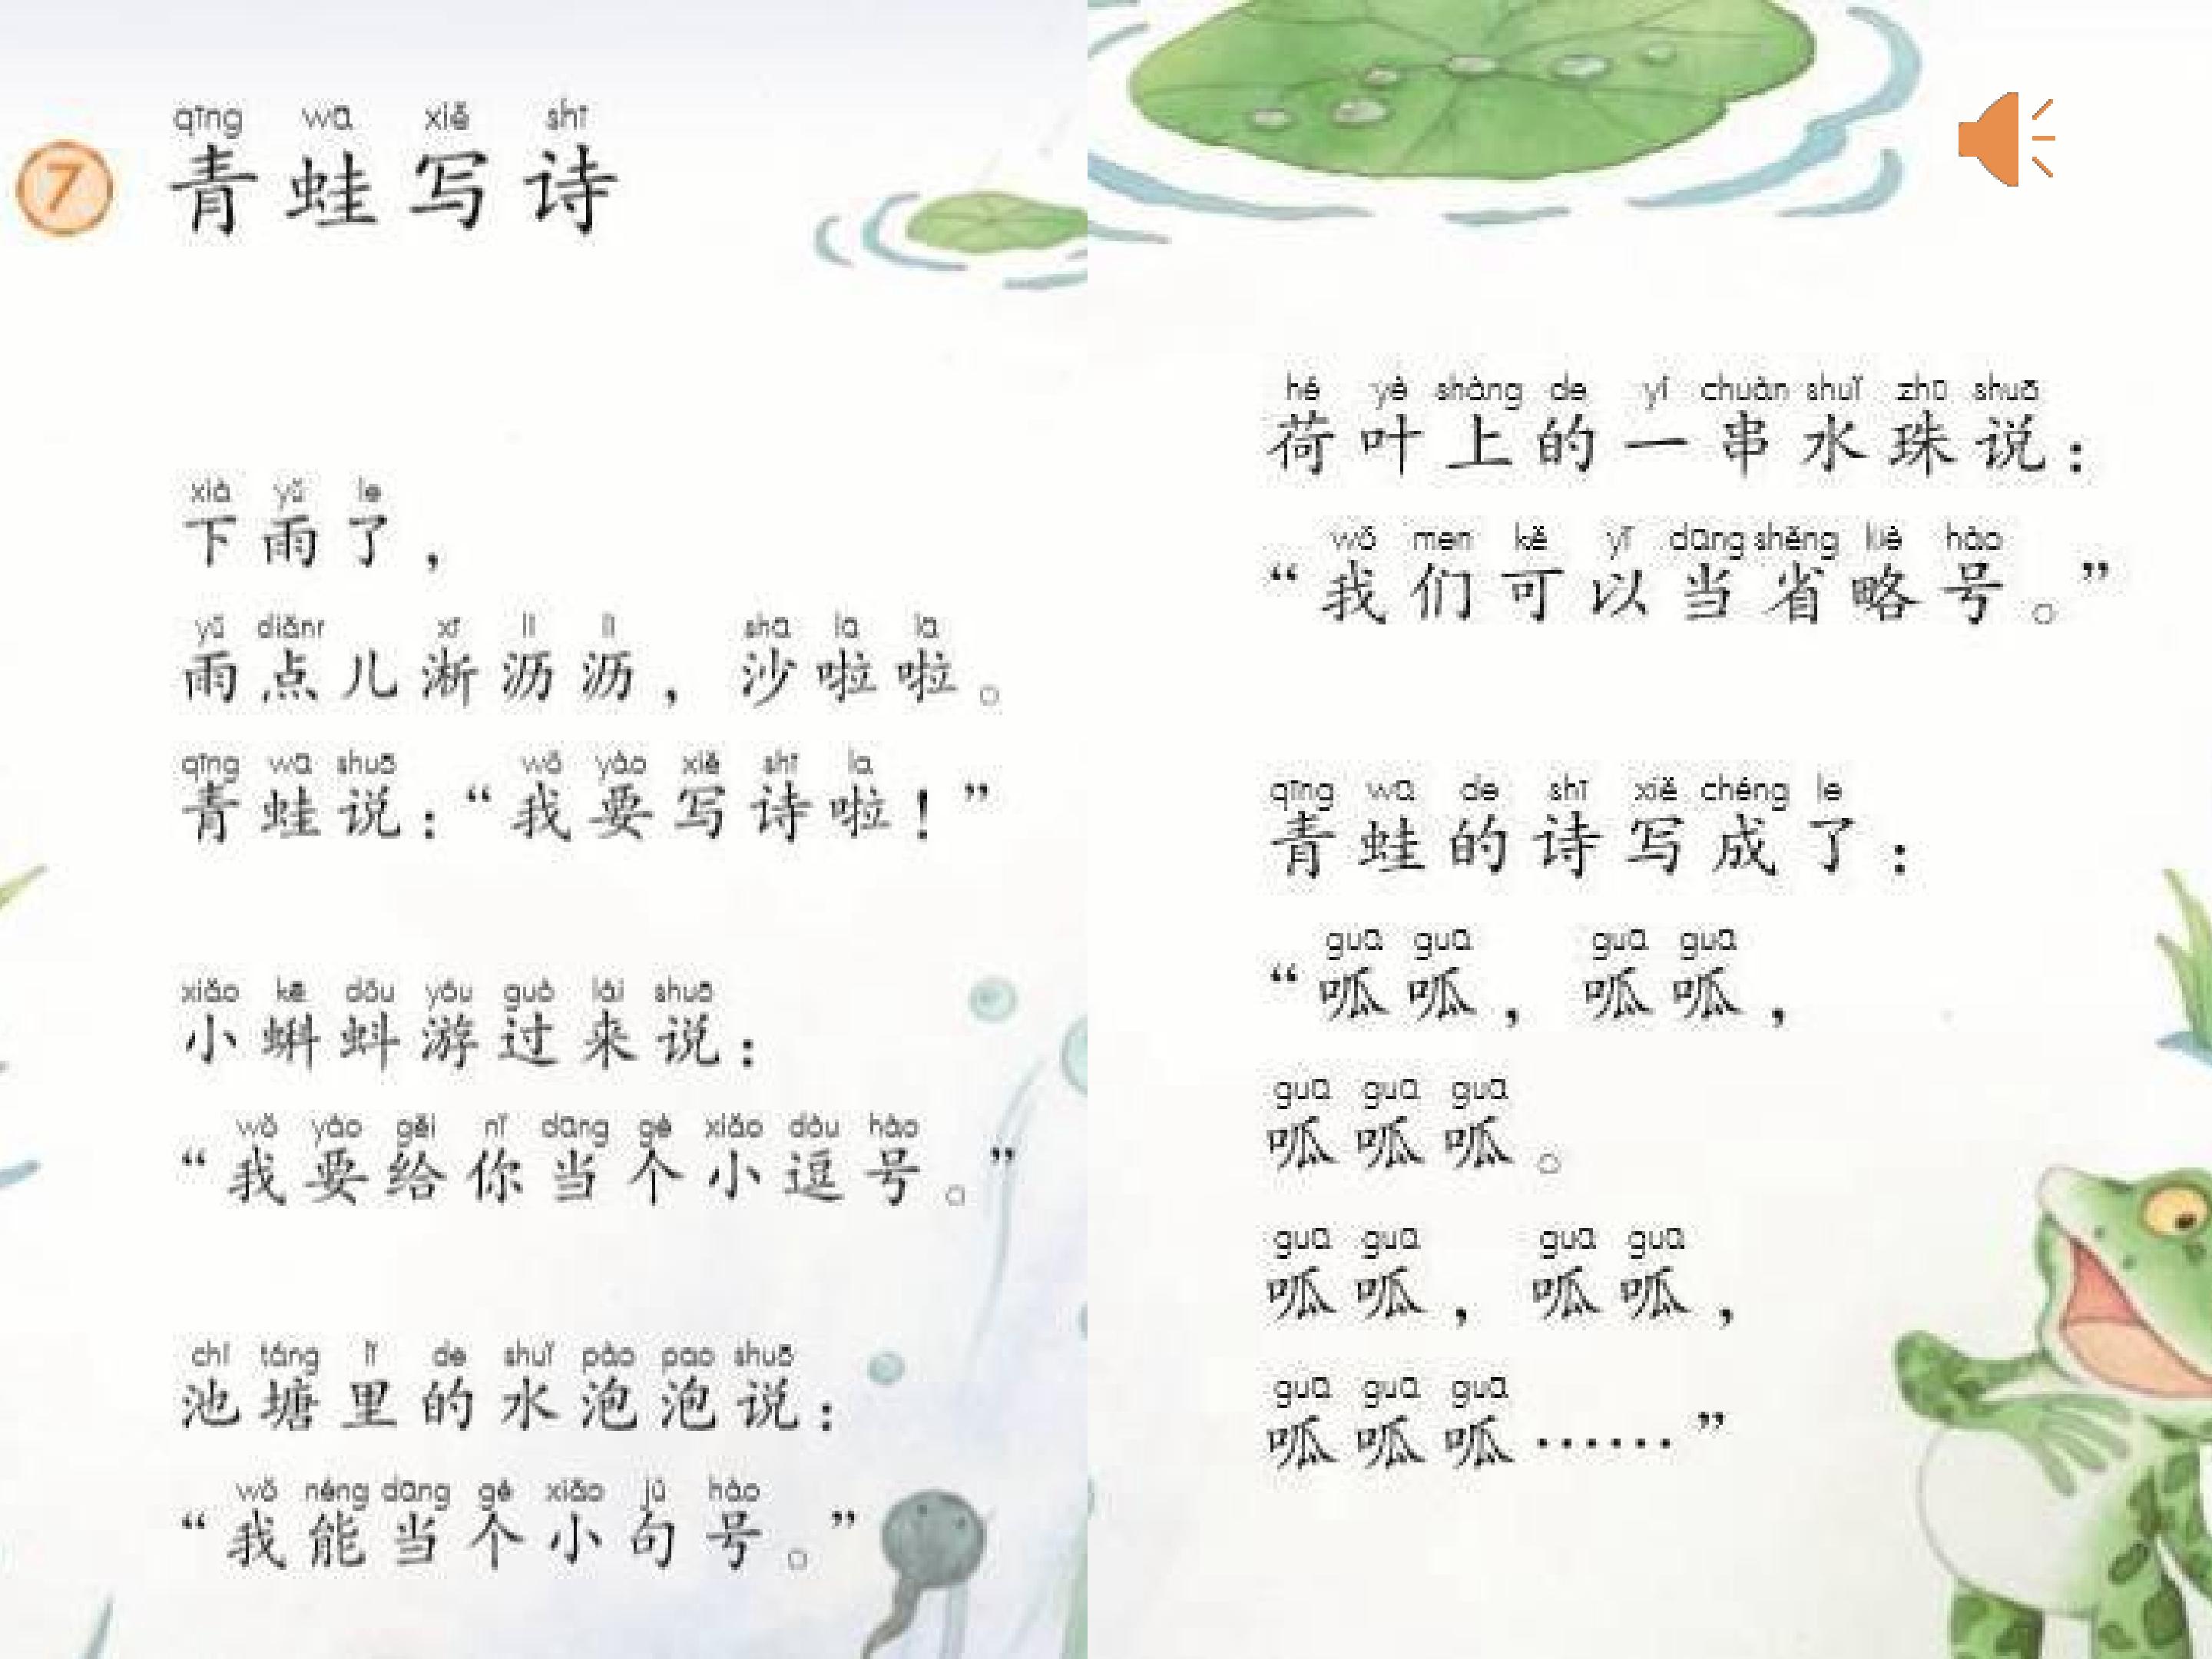 qīng wā xiě shī
7 青蛙写诗
xià yǔ le
下雨了，
yǔ diǎnr xī lì lì shā lā lā
雨点儿淅沥沥，沙啦啦。
qīng wā shuō wǒ yào xiě shī la
青蛙说：“我要写诗啦！”
xiǎo kē dǒu yóu guò lái shuō
小蝌蚪游过来说：
wǒ yào gěi nǐ dāng gè xiǎo dòu hào
“我要给你当个小逗号。”
chí táng lǐ de shuǐ pào pao shuō
池塘里的水泡泡说：
wǒ néng dāng gè xiǎo jù hào
“我能当个小句号。”
hé yè shàng de yí chuàn shuǐ zhū shuō
荷叶上的一串水珠说：
wǒ men kě yǐ dāng shěng lüè hào
“我们可以当省略号。”
qīng wā de shī xiě chéng le
青蛙的诗写成了：
guā guā guā guā
“呱呱，呱呱，
guā guā guā
呱呱呱。
guā guā guā guā
呱呱，呱呱，
guā guā guā
呱呱呱……”